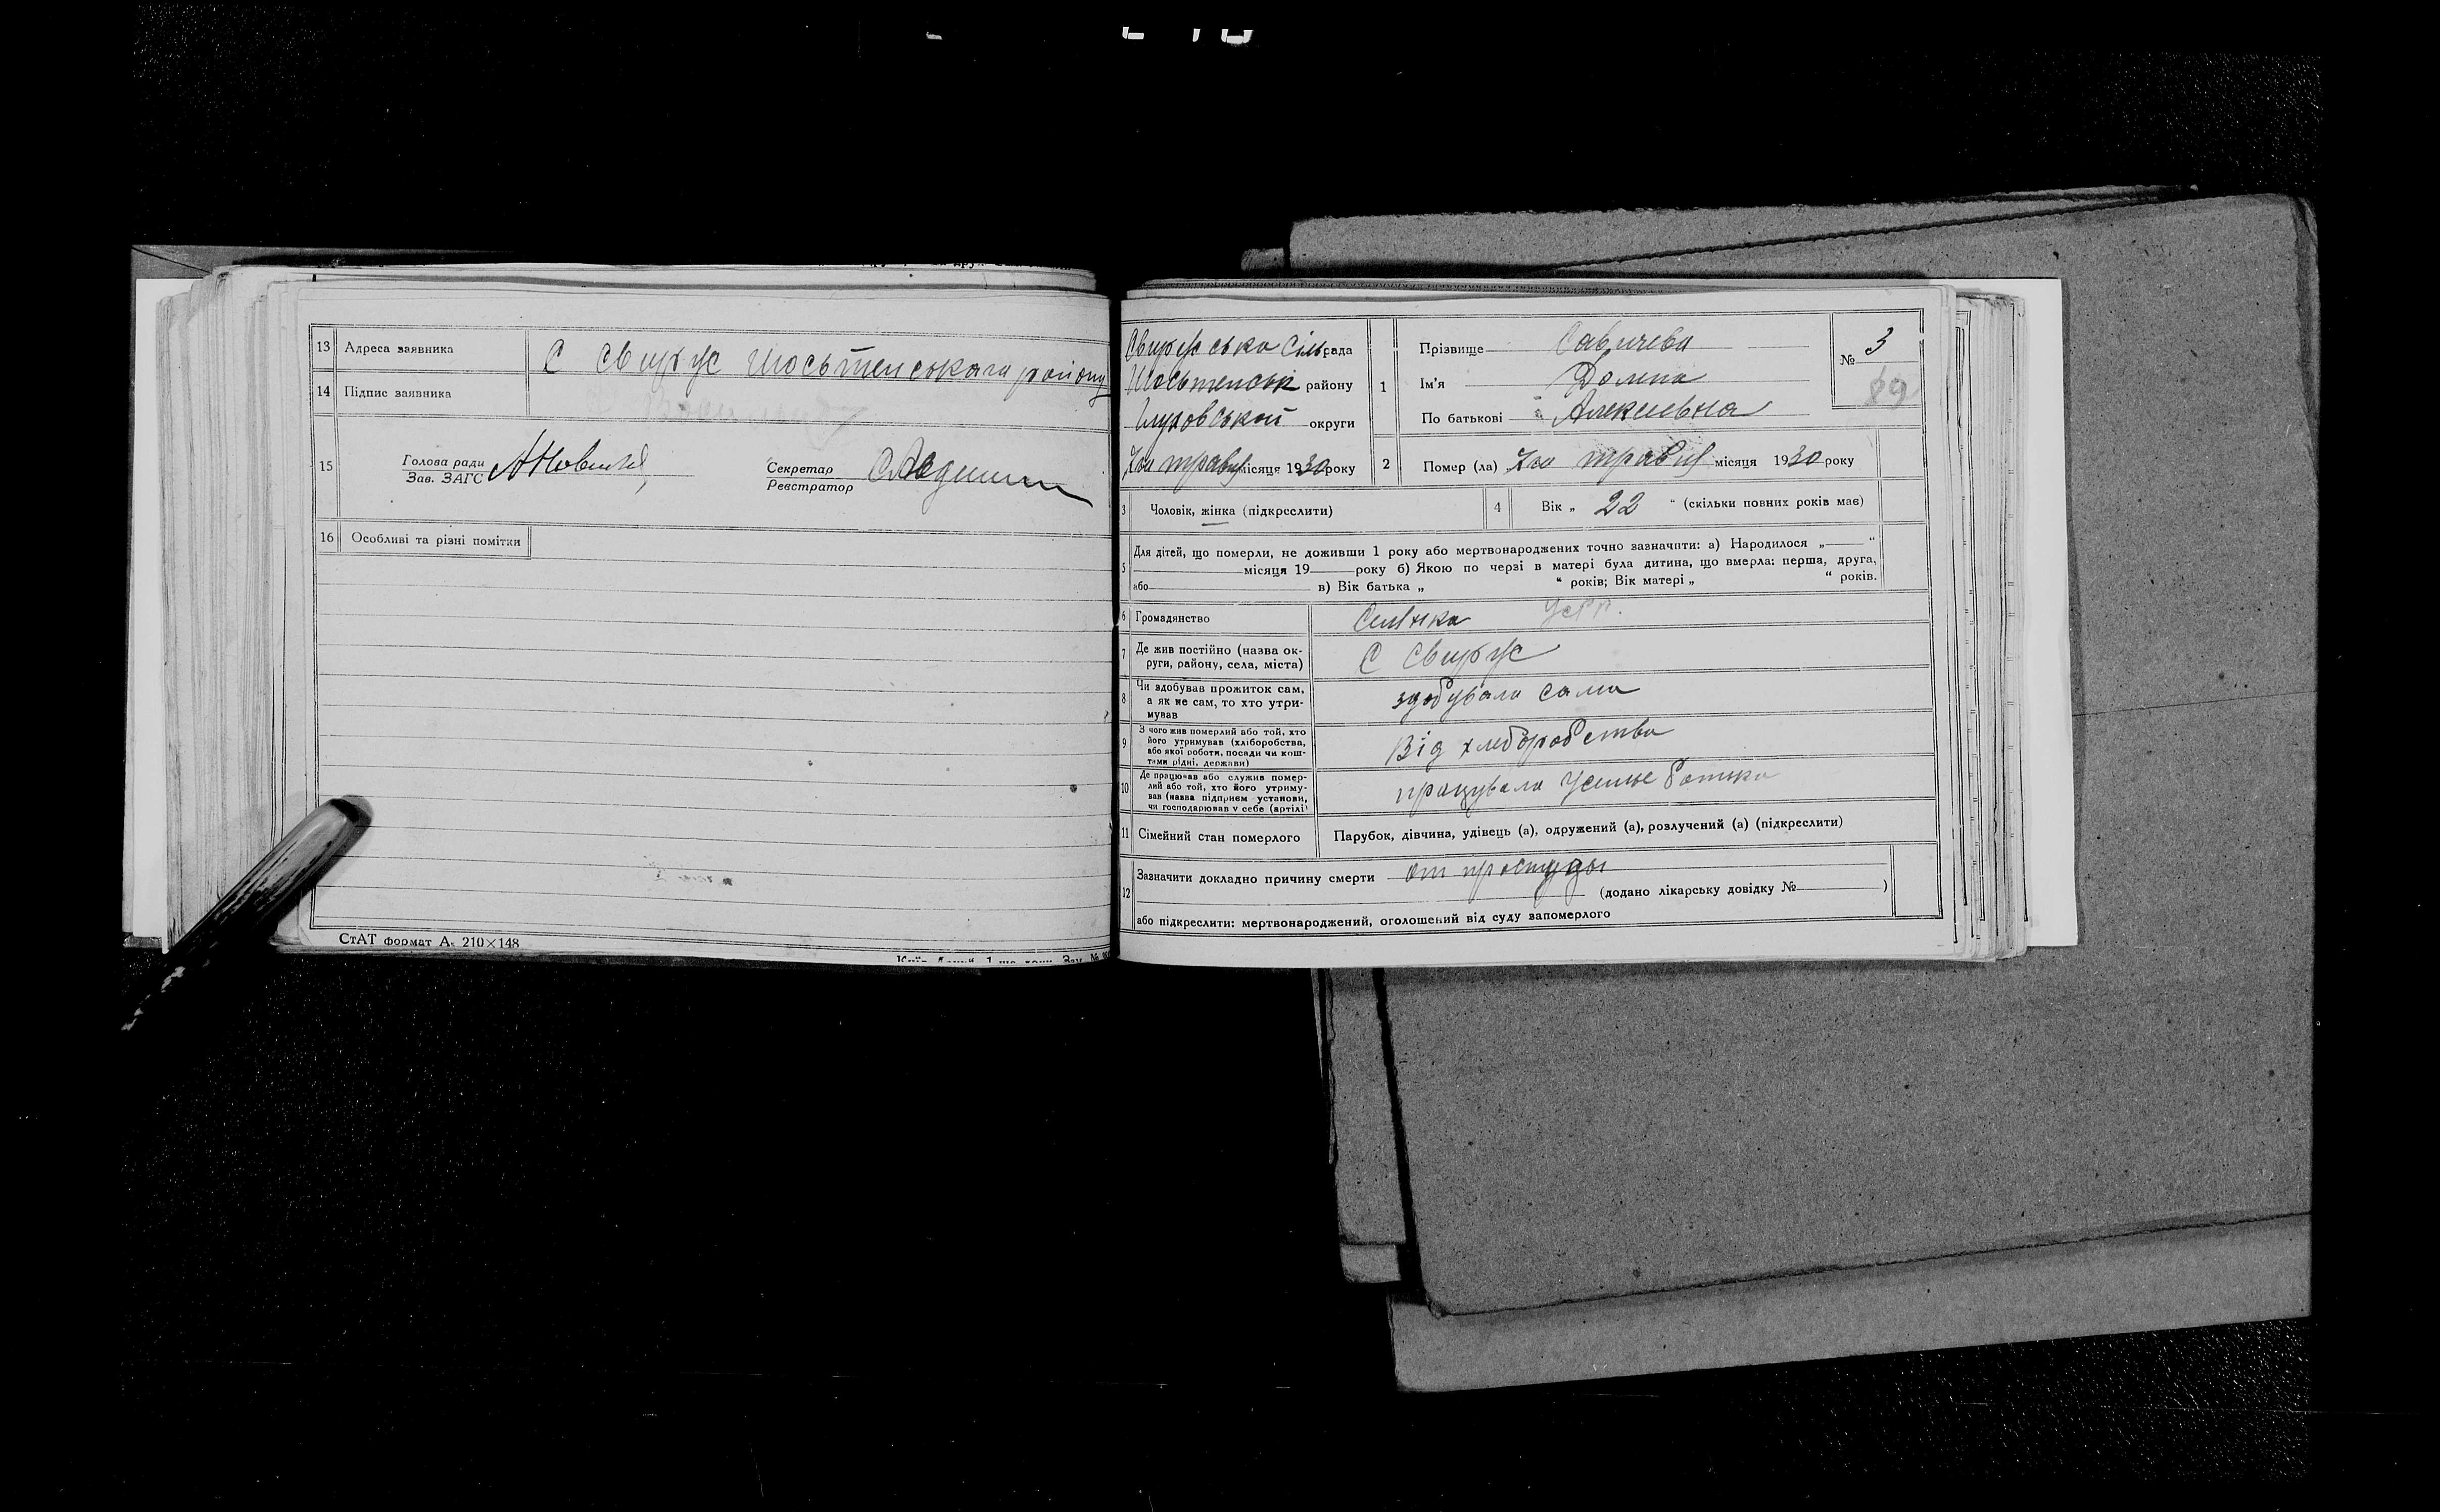 13 Адреса заявника С Свирж Шосьтенського району
14 Підпис заявника
15 Голова ради
Зав. ЗАГС
Секретар
Реєстратор
16 Особливі та різні помітки
СтАТ формат А₅ 210×148
сільрада
Шосьтенськ району
Глуховської округи
травня місяця 1930 року
1 Прізвище Савичева
Ім'я
По батькові Алексієвна
№ 3
69
2 Помер (ла) травня місяця 1930 року
3 Чоловік, жінка (підкреслити)
4 Вік „ 22 “ (скільки повних років має)
5 Для дітей, що померли, не доживши 1 року або мертвонароджених точно зазначити: а) Народилося „ “
місяця 19 року б) Якою по черзі в матері була дитина, що вмерла: перша, друга,
або в) Вік батька „ “ років; Вік матері „ “ років.
6 Громадянство Селянка УСРР.
7 Де жив постійно (назва ок-
руги, району, села, міста)
8 Чи здобував прожиток сам,
а як не сам, то хто утри-
мував
здобувала сама
9 З чого жив померлий або той, хто
його утримував (хліборобства,
або якої роботи, посади чи кош-
тами рідні, держави)
Від хлеборобства
10 Де працював або служив помер-
лий або той, хто його утриму-
вав (назва підприєм установи,
чи господарював у себе (артілі)
працувала батька
11 Сімейний стан померлого Парубок, дівчина, удівець (а), одружений (а), розлучений (а) (підкреслити)
12 Зазначити докладно причину смерти от простуды
(додано лікарську довідку № )
або підкреслити: мертвонароджений, оголошений від суду запомерлого